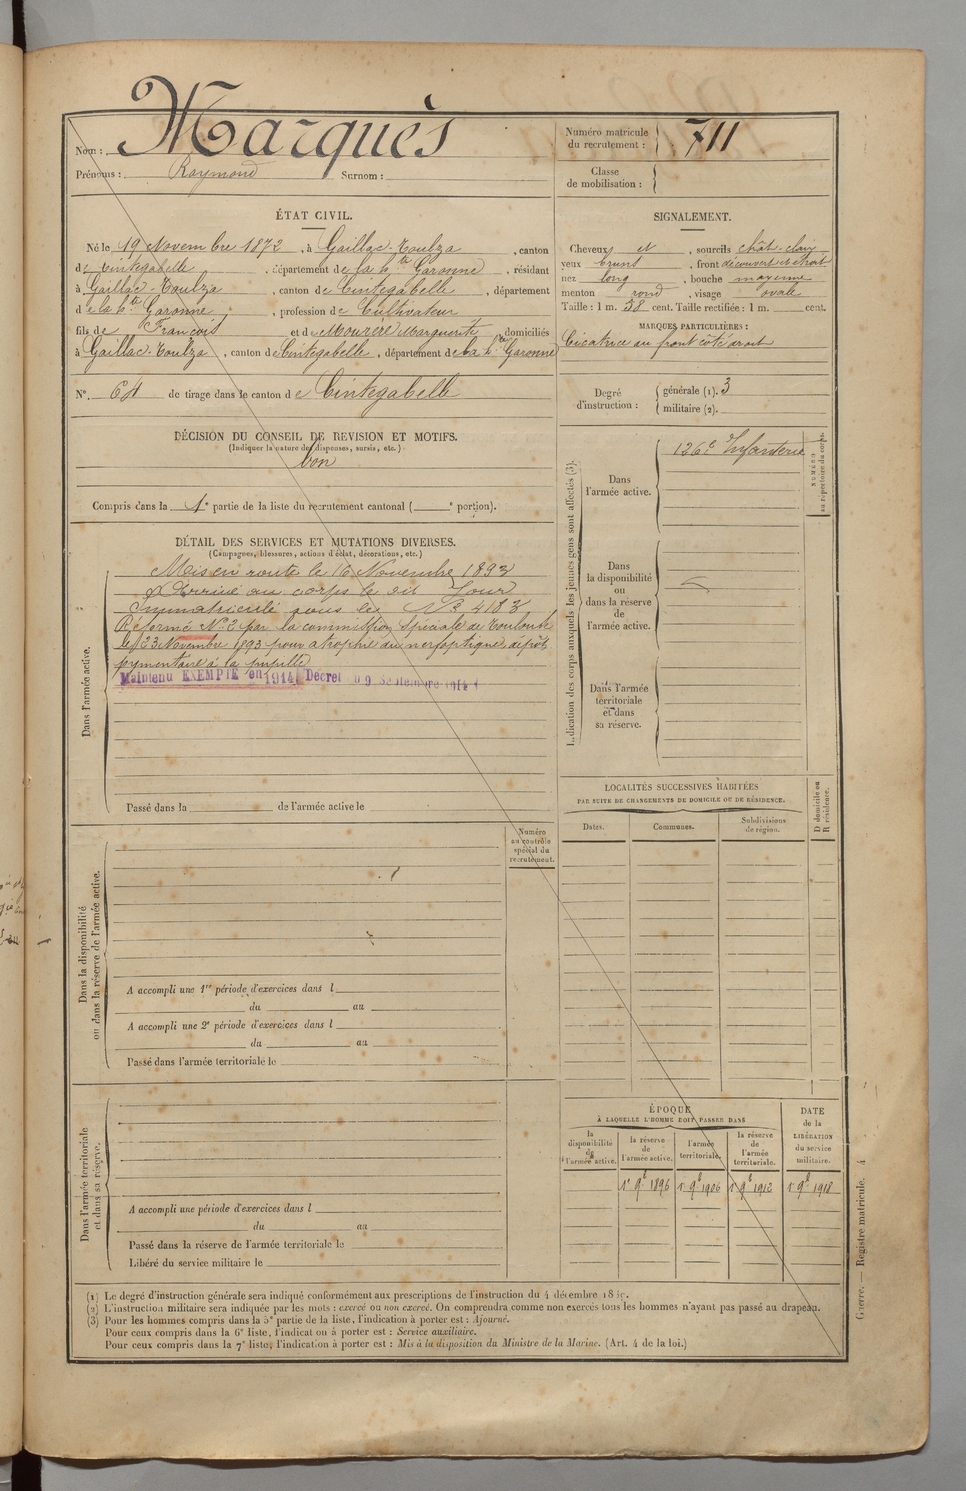 Nom : Marquès
Prénoms : Raymond Surnom :
Numéro matricule du recrutement : 711
Classe de mobilisation :
ÉTAT CIVIL.
Né le 19 Novembre 1872, à Gaillac-Toulza, canton
de Cintegabelle, département de la hte Garonne, résidant
à Gaillac-Toulza, canton de Cintegabelle, département
de la hte Garonne, profession de Cultivateur
fils de François et de Mourère Marguerite, domiciliés
à Gaillac-Toulza, canton de Cintegabelle, département de la hte Garonne
N° 64 de tirage dans le canton de Cintegabelle
DÉCISION DU CONSEIL DE REVISION ET MOTIFS.
(Indiquer la nature des dispenses, sursis, etc.)
bon
Compris dans la 1e partie de la liste du recrutement cantonal ( e portion).
SIGNALEMENT.
Cheveux et, sourcils chât-clair
yeux bruns, front découvert et étroit
nez long, bouche moyenne
menton rond, visage ovale
Taille : 1 m. 58 cent. Taille rectifiée : 1 m. cent.
MARQUES PARTICULIÈRES :
Cicatrice au front côté droit
Degré d'instruction : générale (1). 3
militaire (2).
DÉTAIL DES SERVICES ET MUTATIONS DIVERSES.
(Campagnes, blessures, actions d'éclat, décorations, etc.)
Dans l'armée active.
Mis en route le 16 Novembre 1893
Arrivé au corps le dit Jour
Immatriculé sous le N° 4183
Réformé N° 2 par la commission spéciale de Toulouse
le 23 Novembre 1893 pour atrophie du nerf optique, dépôt
pigmentaire à la pupille
Maintenu EXEMPTÉ en 1914 Décret du 9 Septembre 1914
Passé dans la de l'armée active le
Indication des corps auxquels les jeunes gens sont affectés (3).
Dans l'armée active.
126e Infanterie
NUMÉRO au répertoire du corps.
Dans la disponibilité ou dans la réserve de l'armée active.
Dans l'armée territoriale et dans sa réserve.
LOCALITÉS SUCCESSIVES HABITÉES
PAR SUITE DE CHANGEMENTS DE DOMICILE OU DE RÉSIDENCE.
Dates. Communes. Subdivisions de région. D domicile ou R résidence.
Numéro au contrôle spécial du recrutement.
Dans la disponibilité ou dans la réserve de l'armée active.
A accompli une 1re période d'exercices dans l
du au
A accompli une 2e période d'exercices dans l
du au
Passé dans l'armée territoriale le
Dans l'armée territoriale et dans sa réserve.
A accompli une période d'exercices dans l
du au
Passé dans la réserve de l'armée territoriale le
Libéré du service militaire le
ÉPOQUE
À LAQUELLE L'HOMME DOIT PASSER DANS
la disponibilité de l'armée active. la réserve de l'armée active. l'armée territoriale. la réserve de l'armée territoriale. DATE de la LIBÉRATION du service militaire.
1r 9b 1896 1r 9b 1906 1r 9b 1912 1r 9b 1918
(1) Le degré d'instruction générale sera indiqué conformément aux prescriptions de l'instruction du 4 décembre
(2) L'instruction militaire sera indiquée par les mots : exercé ou non exercé. On comprendra comme non exercés tous les hommes n'ayant pas passé au drapeau.
(3) Pour les hommes compris dans la 5e partie de la liste, l'indication à porter est : Ajourné.
Pour ceux compris dans la 6e liste, l'indication à porter est : Service auxiliaire.
Pour ceux compris dans la 7e liste, l'indication à porter est : Mis à la disposition du Ministre de la Marine. (Art. 4 de la loi.)
Guerre. — Registre matricule. 4